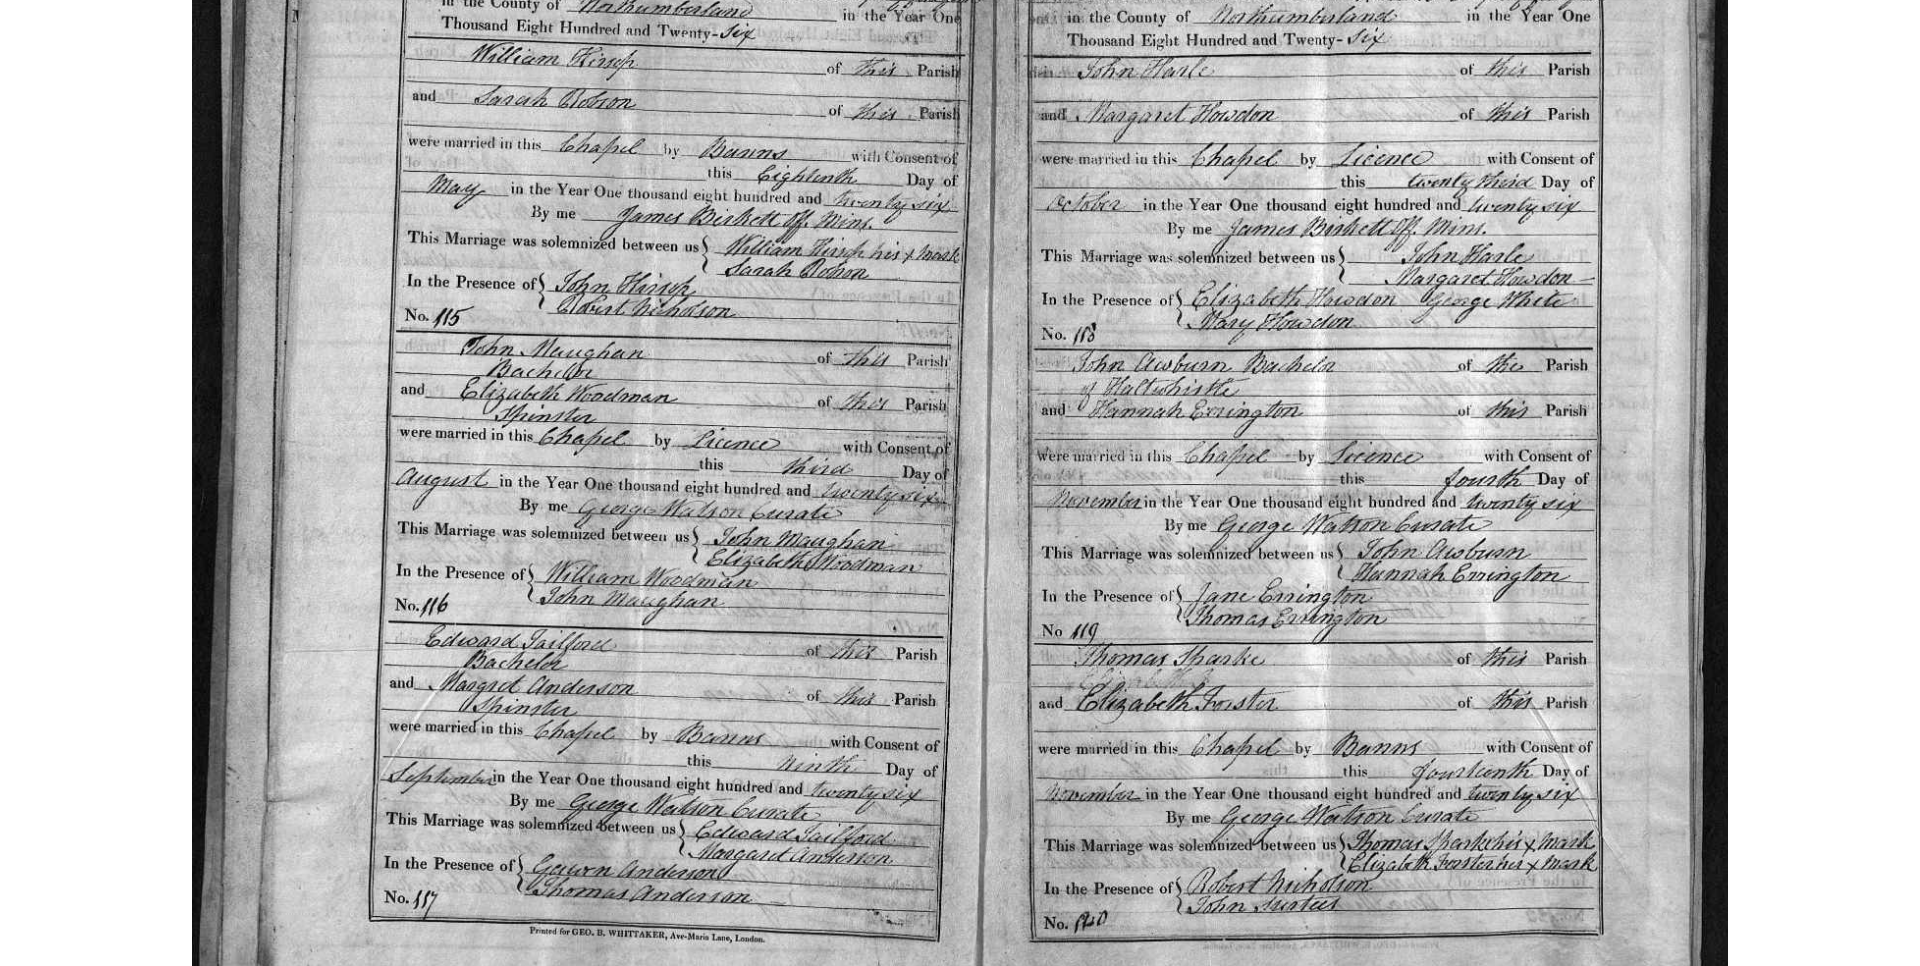 in the County of Northumberland in the Year One
Thousand Eight Hundred and Twenty-six
William Hirsp of this Parish
and Sarah Robson of this Parish
were married in this Chapel by Banns with Consent of
this Eightenth Day of
May in the Year One thousand eight hundred and twenty six
By me James Birkett Off. Mins.
This Marriage was solemnized between us William Hirsp his x mark
Sarah Robson
In the Presence of John Hirsp
Robert Nicholson
No. 115
John Maughan of this Parish
Bachelor
and Elizabeth Woodman of this Parish
Spinster
were married in this Chapel by Licence with Consent of
this third Day of
August in the Year One thousand eight hundred and twenty six
By me George Watson Curate
This Marriage was solemnized between us John Maughan
Elizabeth Woodman
In the Presence of William Woodman
John Maughan
No. 116
Edward Tailford of this Parish
Bachelor
and Margret Anderson of this Parish
Spinster
were married in this Chapel by Banns with Consent of
this ninth Day of
September in the Year One thousand eight hundred and twenty six
By me George Watson Curate
This Marriage was solemnized between us Edward Tailford
Margaret Anderson
In the Presence of Gawn Anderson
Thomas Anderson
No. 117
Printed for GEO. B. WHITTAKER, Ave-Maria Lane, London.
in the County of Northumberland in the Year One
Thousand Eight Hundred and Twenty-six
John Harle of this Parish
and Margaret Howdon of this Parish
were married in this Chapel by Licence with Consent of
this twenty third Day of
October in the Year One thousand eight hundred and twenty six
By me James Birkett Off. Mins.
This Marriage was solemnized between us John Harle
Margaret Howdon
In the Presence of Elizabeth Howdon George White
Mary Howdon
No. 118
John Awburn Bachelor of the Parish
of Haltwhistle
and Hannah Errington of this Parish
were married in this Chapel by Licence with Consent of
this fourth Day of
November in the Year One thousand eight hundred and twenty six
By me George Watson Curate
This Marriage was solemnized between us John Awburn
Hannah Errington
In the Presence of Jane Errington
Thomas Errington
No 119
Thomas Sparke of this Parish
and Elizabeth Forster of this Parish
were married in this Chapel by Banns with Consent of
this fourteenth Day of
November in the Year One thousand eight hundred and twenty six
By me George Watson Curate
This Marriage was solemnized between us Thomas Sparke his x mark
Elizabeth Forster her x mark
In the Presence of Robert Nicholson
John Surtees
No. 120